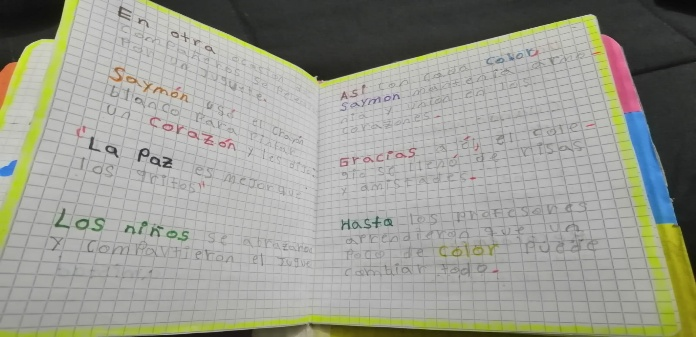 En otra
por un juguete.
Saymón usó el crayón
blanco para pintar
un corazón y les dijo:
"La Paz es mejor que
los gritos"
Los niños se abrazaron
y compartieron el jugue
Así con cada color
Saymon
corazones
Gracias a él, el cole-
gio se llenó de risas
y amistades.
Hasta los profesores
aprendieron que un
poco de color puede
cambiar todo.